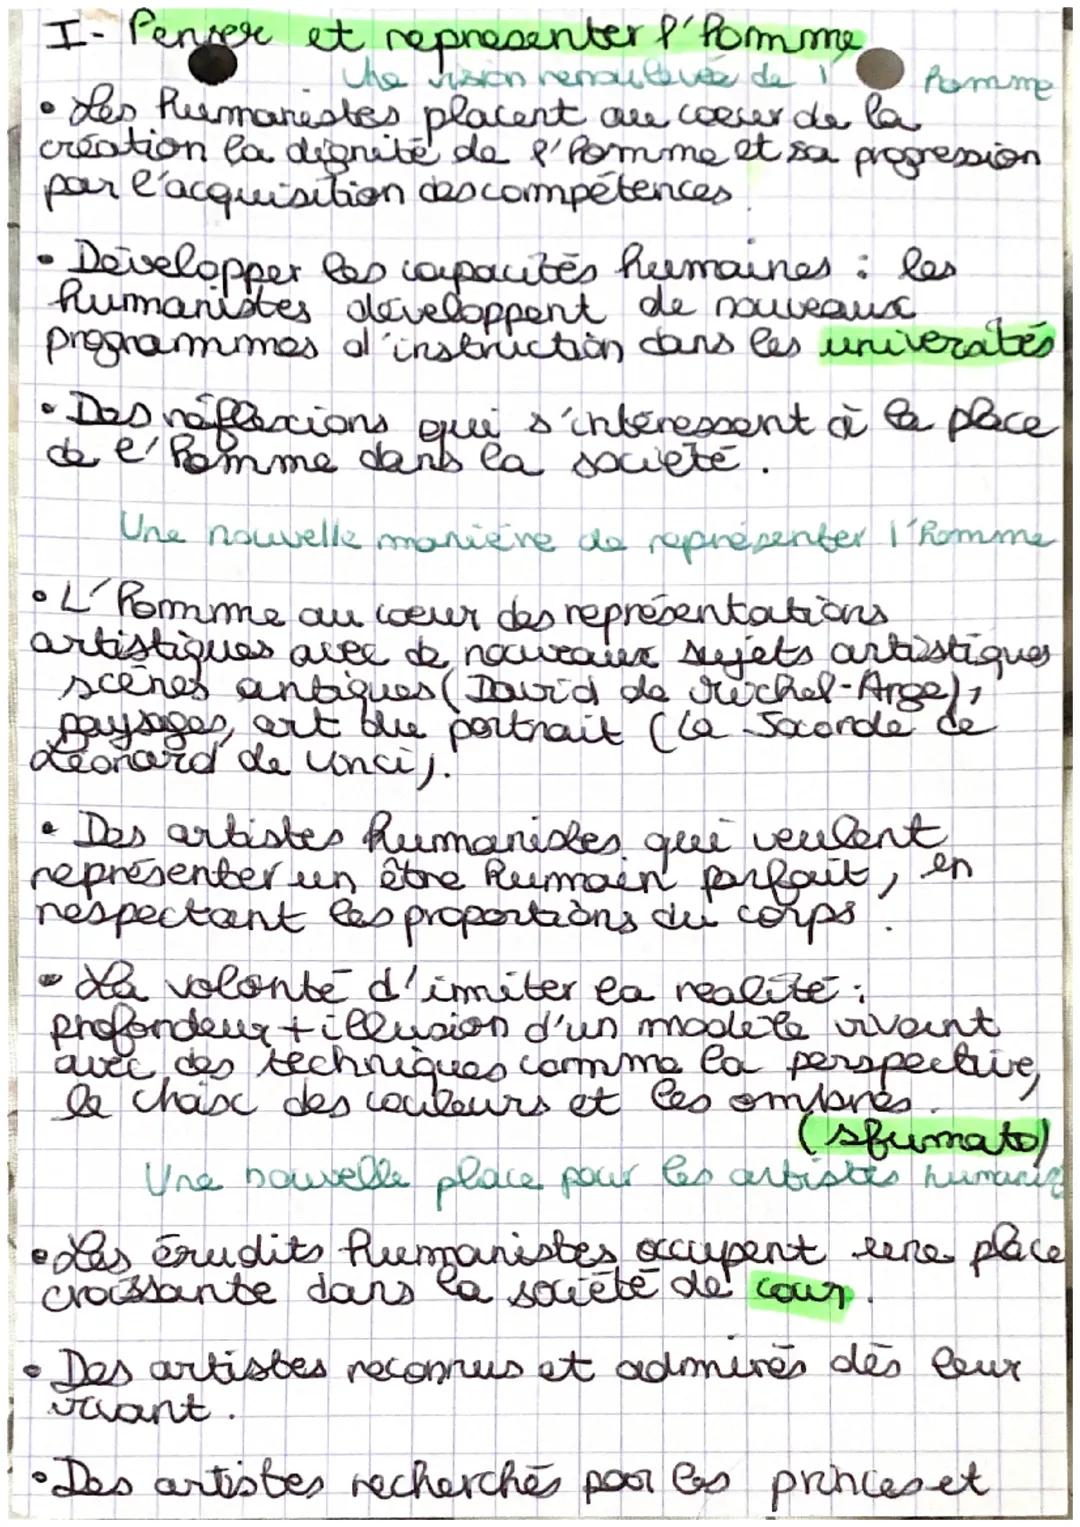 I- Penser et representer l'homme
Une vision renouvelée de l' homme
• Les humanistes placent au coeur de la
création la dignité de l'homme et sa progression
par l'acquisition des compétences.
• Développer les capacités humaines : les
humanistes développent de nouveaux
programmes d'instruction dans les universités
• Des réflexions qui s'intéressent à la place
de l'homme dans la société.
Une nouvelle manière de représenter l'homme
• L'homme au coeur des représentations
artistiques avec de nouveaux sujets artistiques
scènes antiques (David de Michel-Ange),
paysages, art du portrait (la Joconde de
Léonard de Vinci).
• Des artistes humanistes qui veulent
représenter un être humain parfait, en
respectant les proportions du corps.
• La volonté d'imiter la réalité :
profondeur + illusion d'un modèle vivant
avec des techniques comme la perspective,
le choix des couleurs et les ombres.
(sfumato)
Une nouvelle place pour les artistes humanis
• Les érudits humanistes occupent une place
croissante dans la société de cour.
• Des artistes reconnus et admirés dès leur
vivant.
• Des artistes recherchés par les princes et